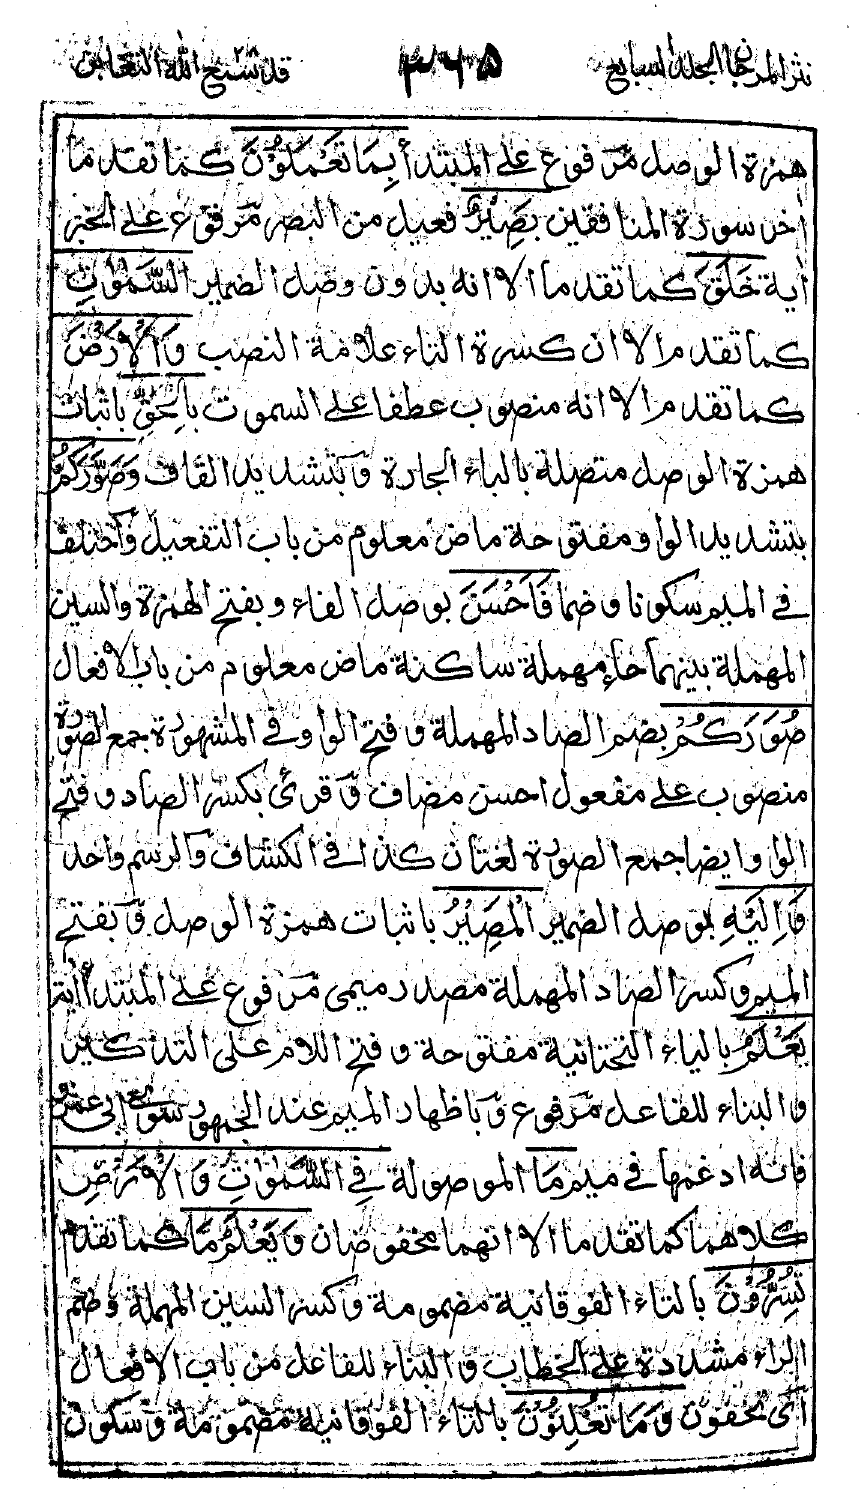 نثر المرجان المجلد السابع ٣٦٥ قد سمع الله ٢٨ التغابن
همزة الوصل مرفوع على المبتدأ بِمَا تَعْمَلُوْنَ كما تقدم ما
أخر سورة المنافقين بَصِيْرٌ فعيل من البصر مرفوع على الخبر
أية خَلَقَ كما تقدم الا انه بدون وصل الضمير السَّمٰوٰتِ
كما تقدم الا ان كسرة التاء علامة النصب وَالْاَرْضَ
كما تقدم الا انه منصوب عطفا على السموت بِالْحَقِّ باثبات
همزة الوصل متصلة بالباء الجارة وبتشديد القاف وَصَوَّرَكُمْ
بتشديد الواو مفتوحة ماض معلوم من باب التفعيل واختلف
في الميم سكونا وضما فَاَحْسَنَ بوصل الفاء وبفتح الهمزة والسين
المهملة بينهما حاء مهملة ساكنة ماض معلوم من باب الافعال
صُوَرَكُمْ بضم الصاد المهملة وفتح الواو في المشهورة جمع الصورة
منصوب على مفعول احسن مضاف وقرئ بكسر الصاد وفتح
الواو ايضا جمع الصورة لغتان كذا في الكشاف والرسم واحد
وَاِلَيْهِ بوصل الضمير الْمَصِيْرُ باثبات همزة الوصل وبفتح
الميم وكسر الصاد المهملة مصدر ميمي مرفوع على المبتدأ أية
يَعْلَمُ بالياء التحتانية مفتوحة وفتح اللام على التذكير
والبناء للفاعل مرفوع وباظهار الميم عند الجمهور سوى ابى عمرو
فانه ادغمها في ميم مَا الموصولة فِي السَّمٰوٰتِ وَالْاَرْضِ
كلاهما كما تقدم الا انهما مخفوضان وَيَعْلَمُ مَا كما تقدم
تُسِرُّوْنَ بالتاء الفوقانية مضمومة وكسر السين المهملة وضم
الراء مشددة على الخطاب والبناء للفاعل من باب الافعال
اى تخفون وَمَا تُعْلِنُوْنَ بالتاء الفوقانية مضمومة وسكون